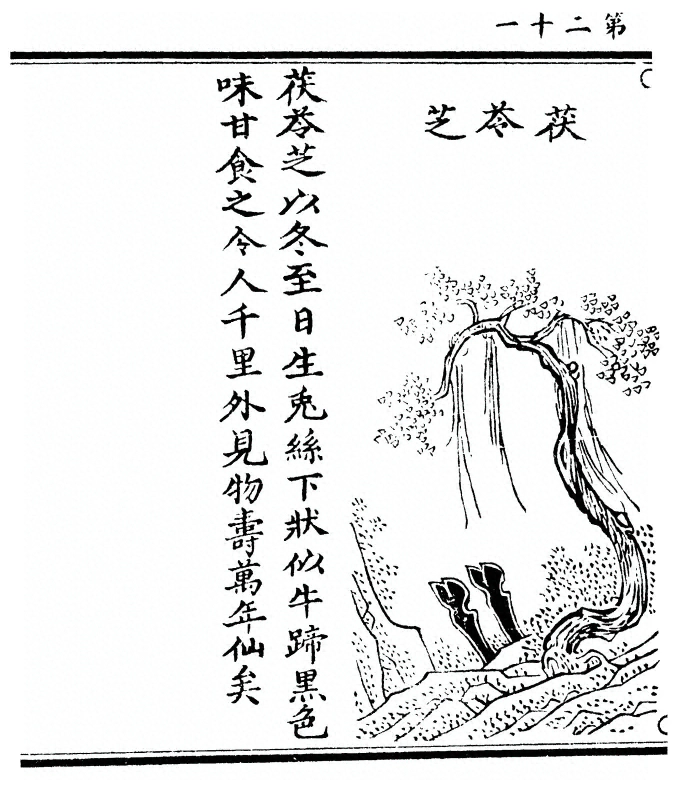 第二十一
茯苓芝
茯苓芝以冬至日生兎絲下狀似牛蹄黒色
味甘食之令人千里外見物壽萬年仙矣